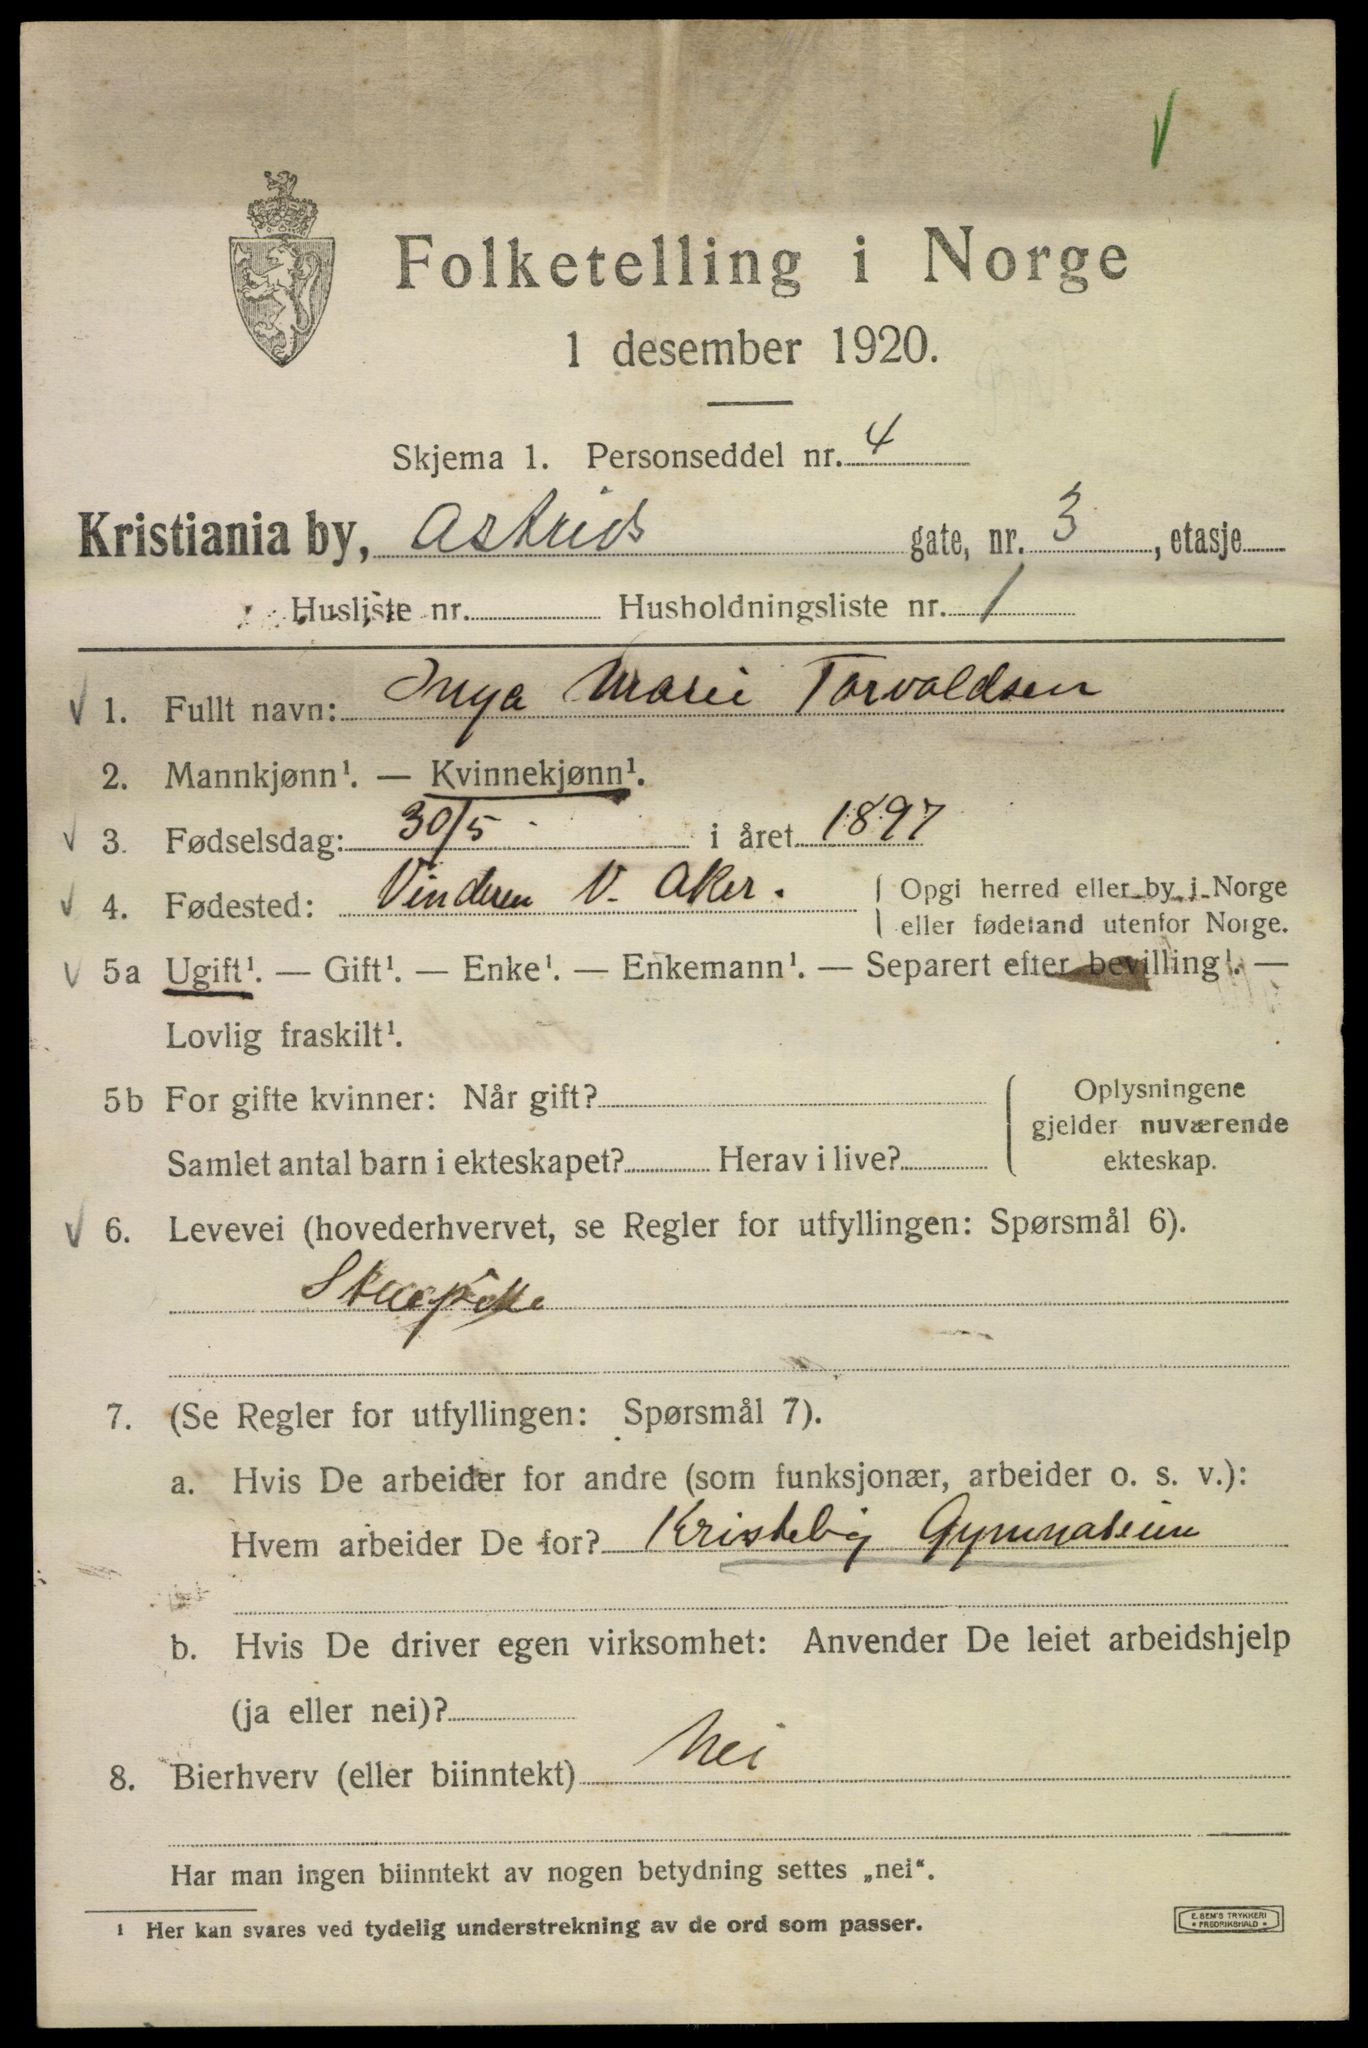 Folketelling i Norge
1 desember 1920.
Skjema 1. Personseddel nr. 4
Kristiania by, Astrids gate, nr. 3, etasje
Husliste nr. Husholdningsliste nr. 1
1. Fullt navn: Inga Marie Torvaldsen
2. Mannkjønn¹. — Kvinnekjønn¹.
3. Fødselsdag: 30/5 i året 1897
4. Fødested: Vinderen V. Aker. Opgi herred eller by i Norge
eller fødeland utenfor Norge.
5a Ugift¹. — Gift¹. — Enke¹. — Enkemann¹. — Separert efter bevilling¹. —
Lovlig fraskilt¹.
5b For gifte kvinner: Når gift?
Samlet antal barn i ekteskapet? Herav i live?
Oplysningene
gjelder nuværende
ekteskap.
6. Levevei (hovederhvervet, se Regler for utfyllingen: Spørsmål 6).
7. (Se Regler for utfyllingen: Spørsmål 7).
a. Hvis De arbeider for andre (som funksjonær, arbeider o. s. v.):
Hvem arbeider De for? Kristelig Gymnasium
b. Hvis De driver egen virksomhet: Anvender De leiet arbeidshjelp
(ja eller nei)?
8. Bierhverv (eller biinntekt) Nei
Har man ingen biinntekt av nogen betydning settes „nei“.
¹ Her kan svares ved tydelig understrekning av de ord som passer.
E. SEM'S TRYKKERI
• FREDRIKSHALD •